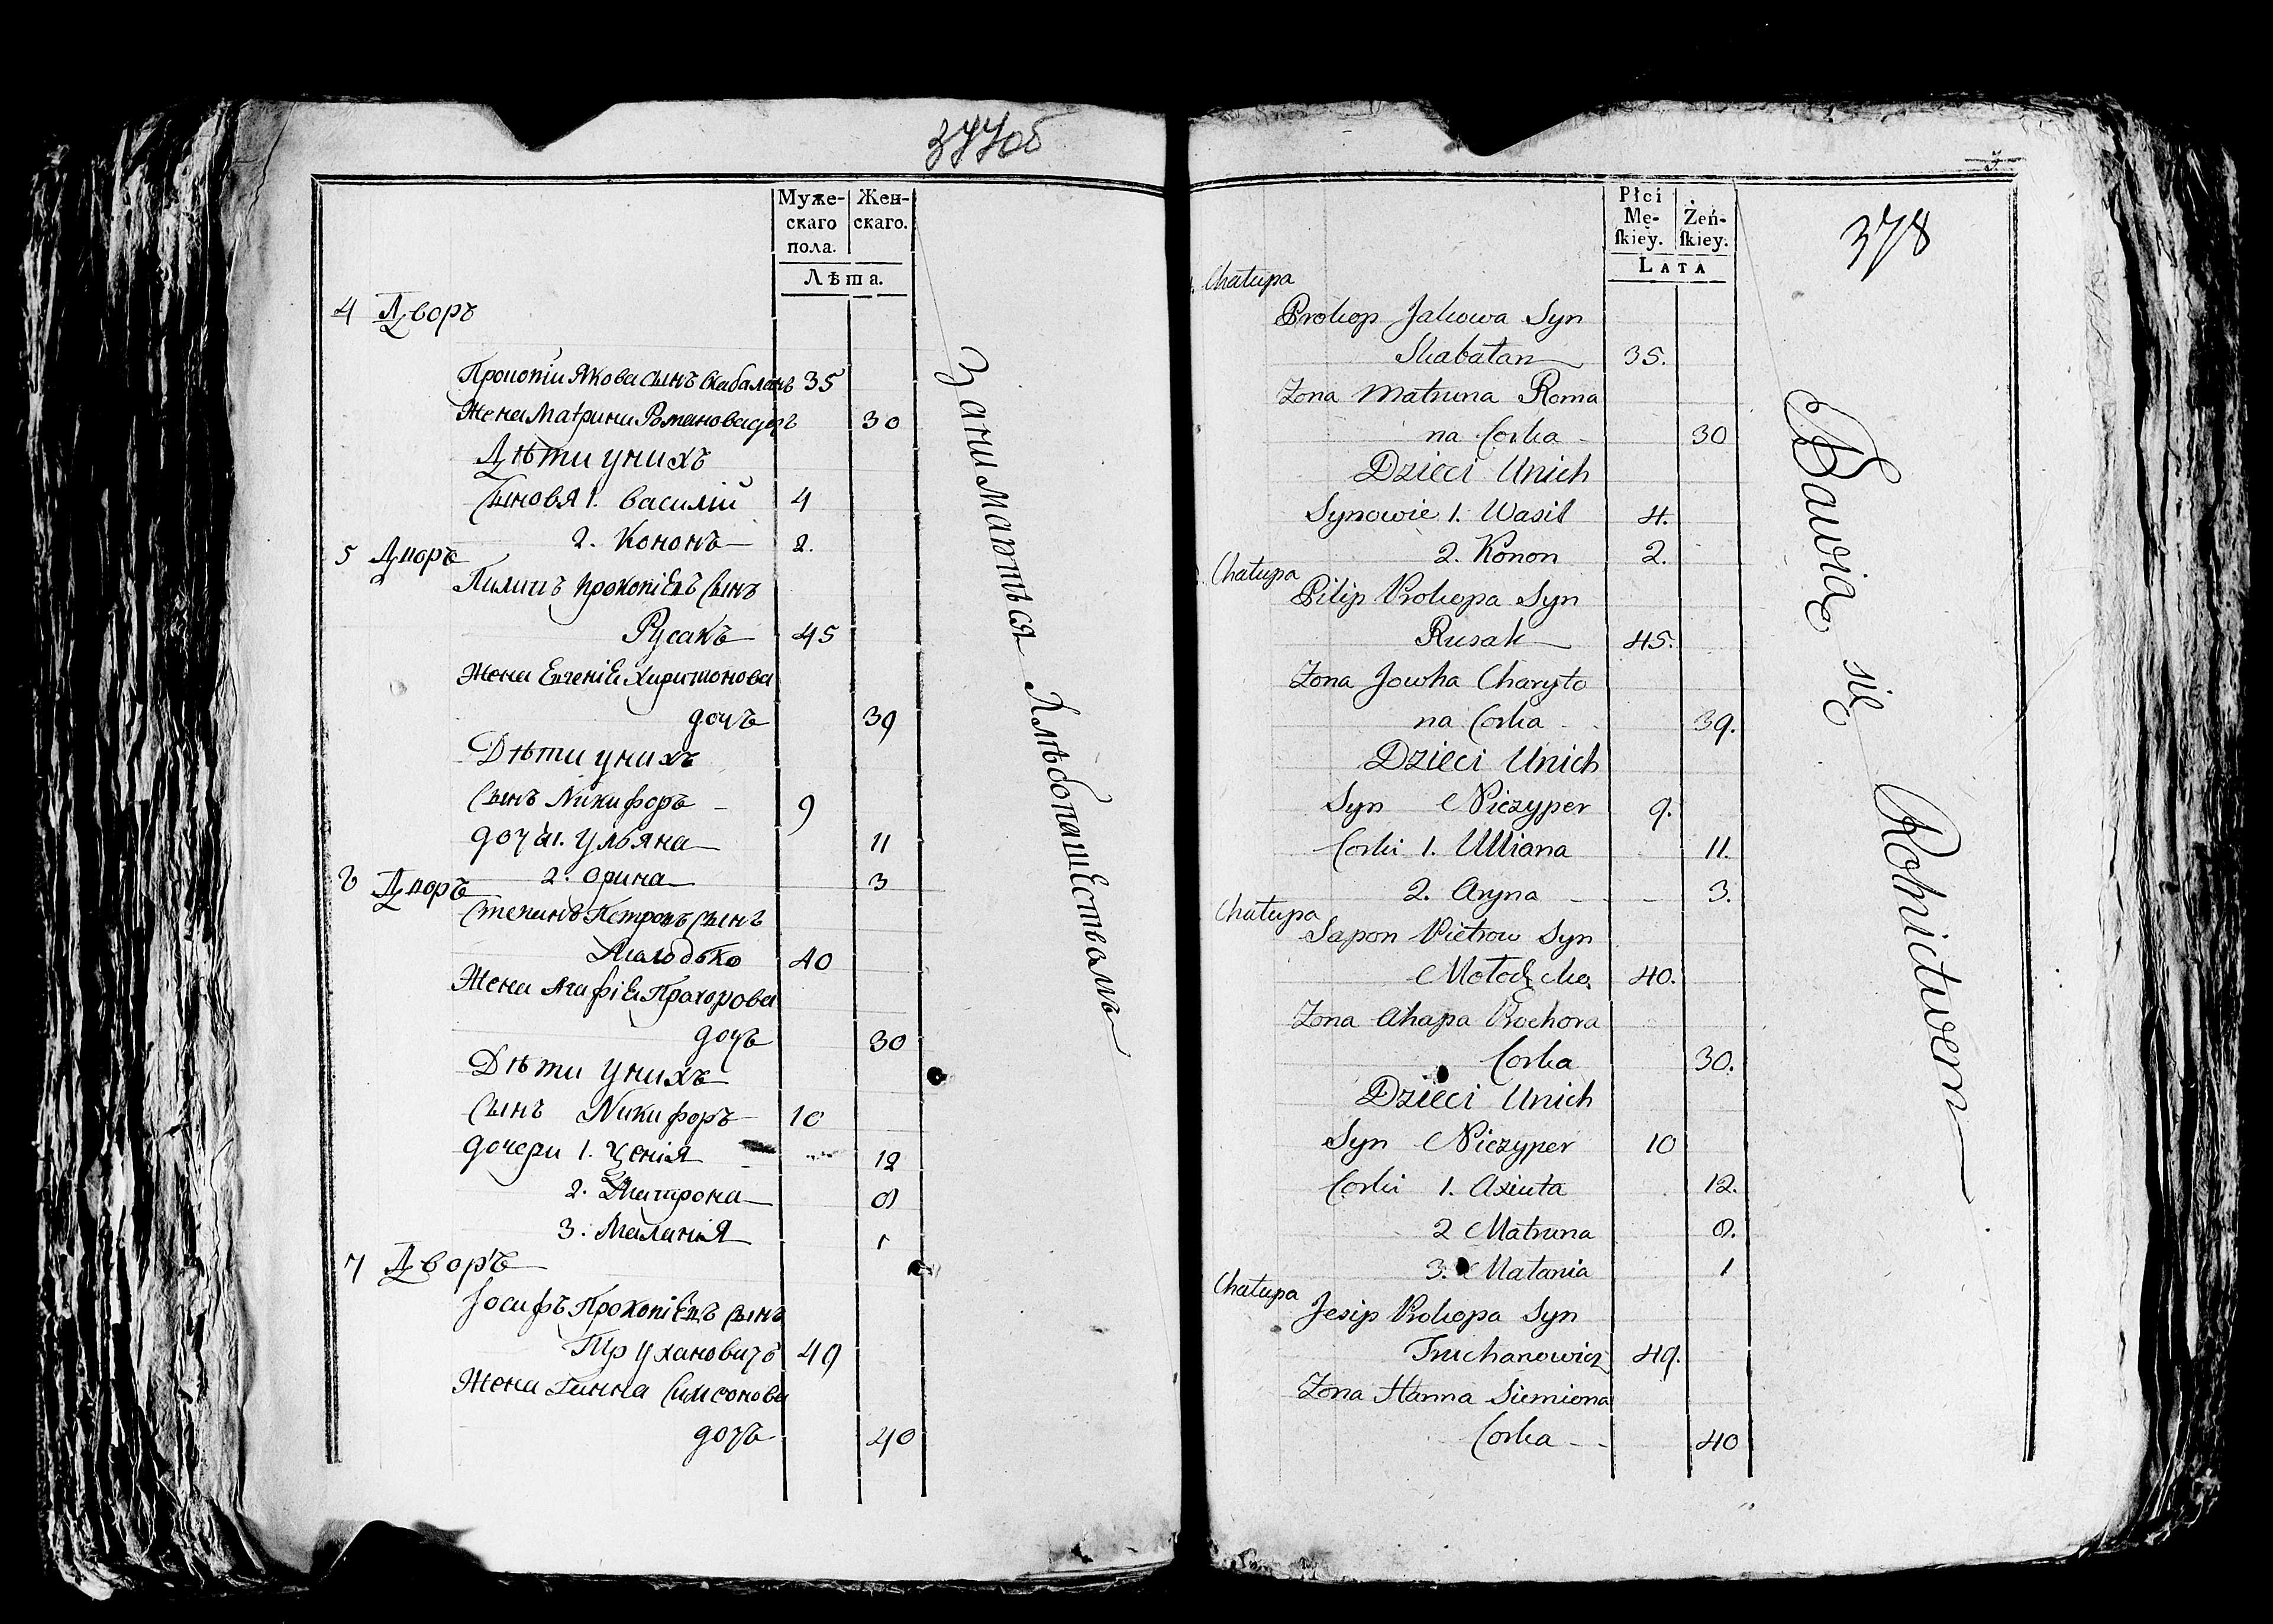 377об
Муже-
скаго
пола.
Жен-
скаго.
Лѣта.
4 Дворъ
Прокопій Якова сынъ Скабаланъ 35
Жена Матрина Романова дочъ 30
Дѣти унихъ
Сыновя 1. василій 4
2. Кононъ 2.
5 Дворъ
Пилипъ прокопіевъ сынъ
Русакъ 45
Жена Евгенія Харитонова
дочъ 39
Дѣти унихъ
Сынъ Никифоръ 9
дочъ 1. Ульяна 11
2. Орина 3
6 Дворъ
Степанъ Петровъ сынъ
Молодько 40
Жена Агафія Прохорова
дочъ 30
Дѣти унихъ
Сынъ Никифоръ 10
дочери 1. 12
2. Матрона
3. Маланія 1
7 Дворъ
Іосифъ Прокопіевъ сынъ
Трухановичъ 49
Жена Ганна Симеонова
дочъ 40
Занимаются Хлѣбопашествомъ
378
Płci
Mę-
ſkiey.
Żeń-
ſkiey.
LATA
Chałupa
Prokop Jakowa Syn
Skabałan 35.
Zona Matruna Roma
na Corka 30
Dzieci Unich
Synowie 1. Wasil 4.
2. Konon 2.
Chałupa
Pilip Prokopa Syn
Rusak 45.
Zona Jowha Charyto
na Corka 39.
Dzieci Unich
Syn Niczyper 9.
Corki 1. Ulliana 11.
2. Aryna 3.
Chałupa
Sapon Pietrow Syn
Mołodzko 40.
Zona Ahapa Prochora
Corka 30.
Dzieci Unich
Syn Niczyper 10
Corki 1. Axiuta 12.
2 Matruna
3. Małania 1
Chałupa
Jesip Prokopa Syn
Truchanowicz 49.
Zona Hanna Siemiona
Corka 40
Bawią się Rolnictwem